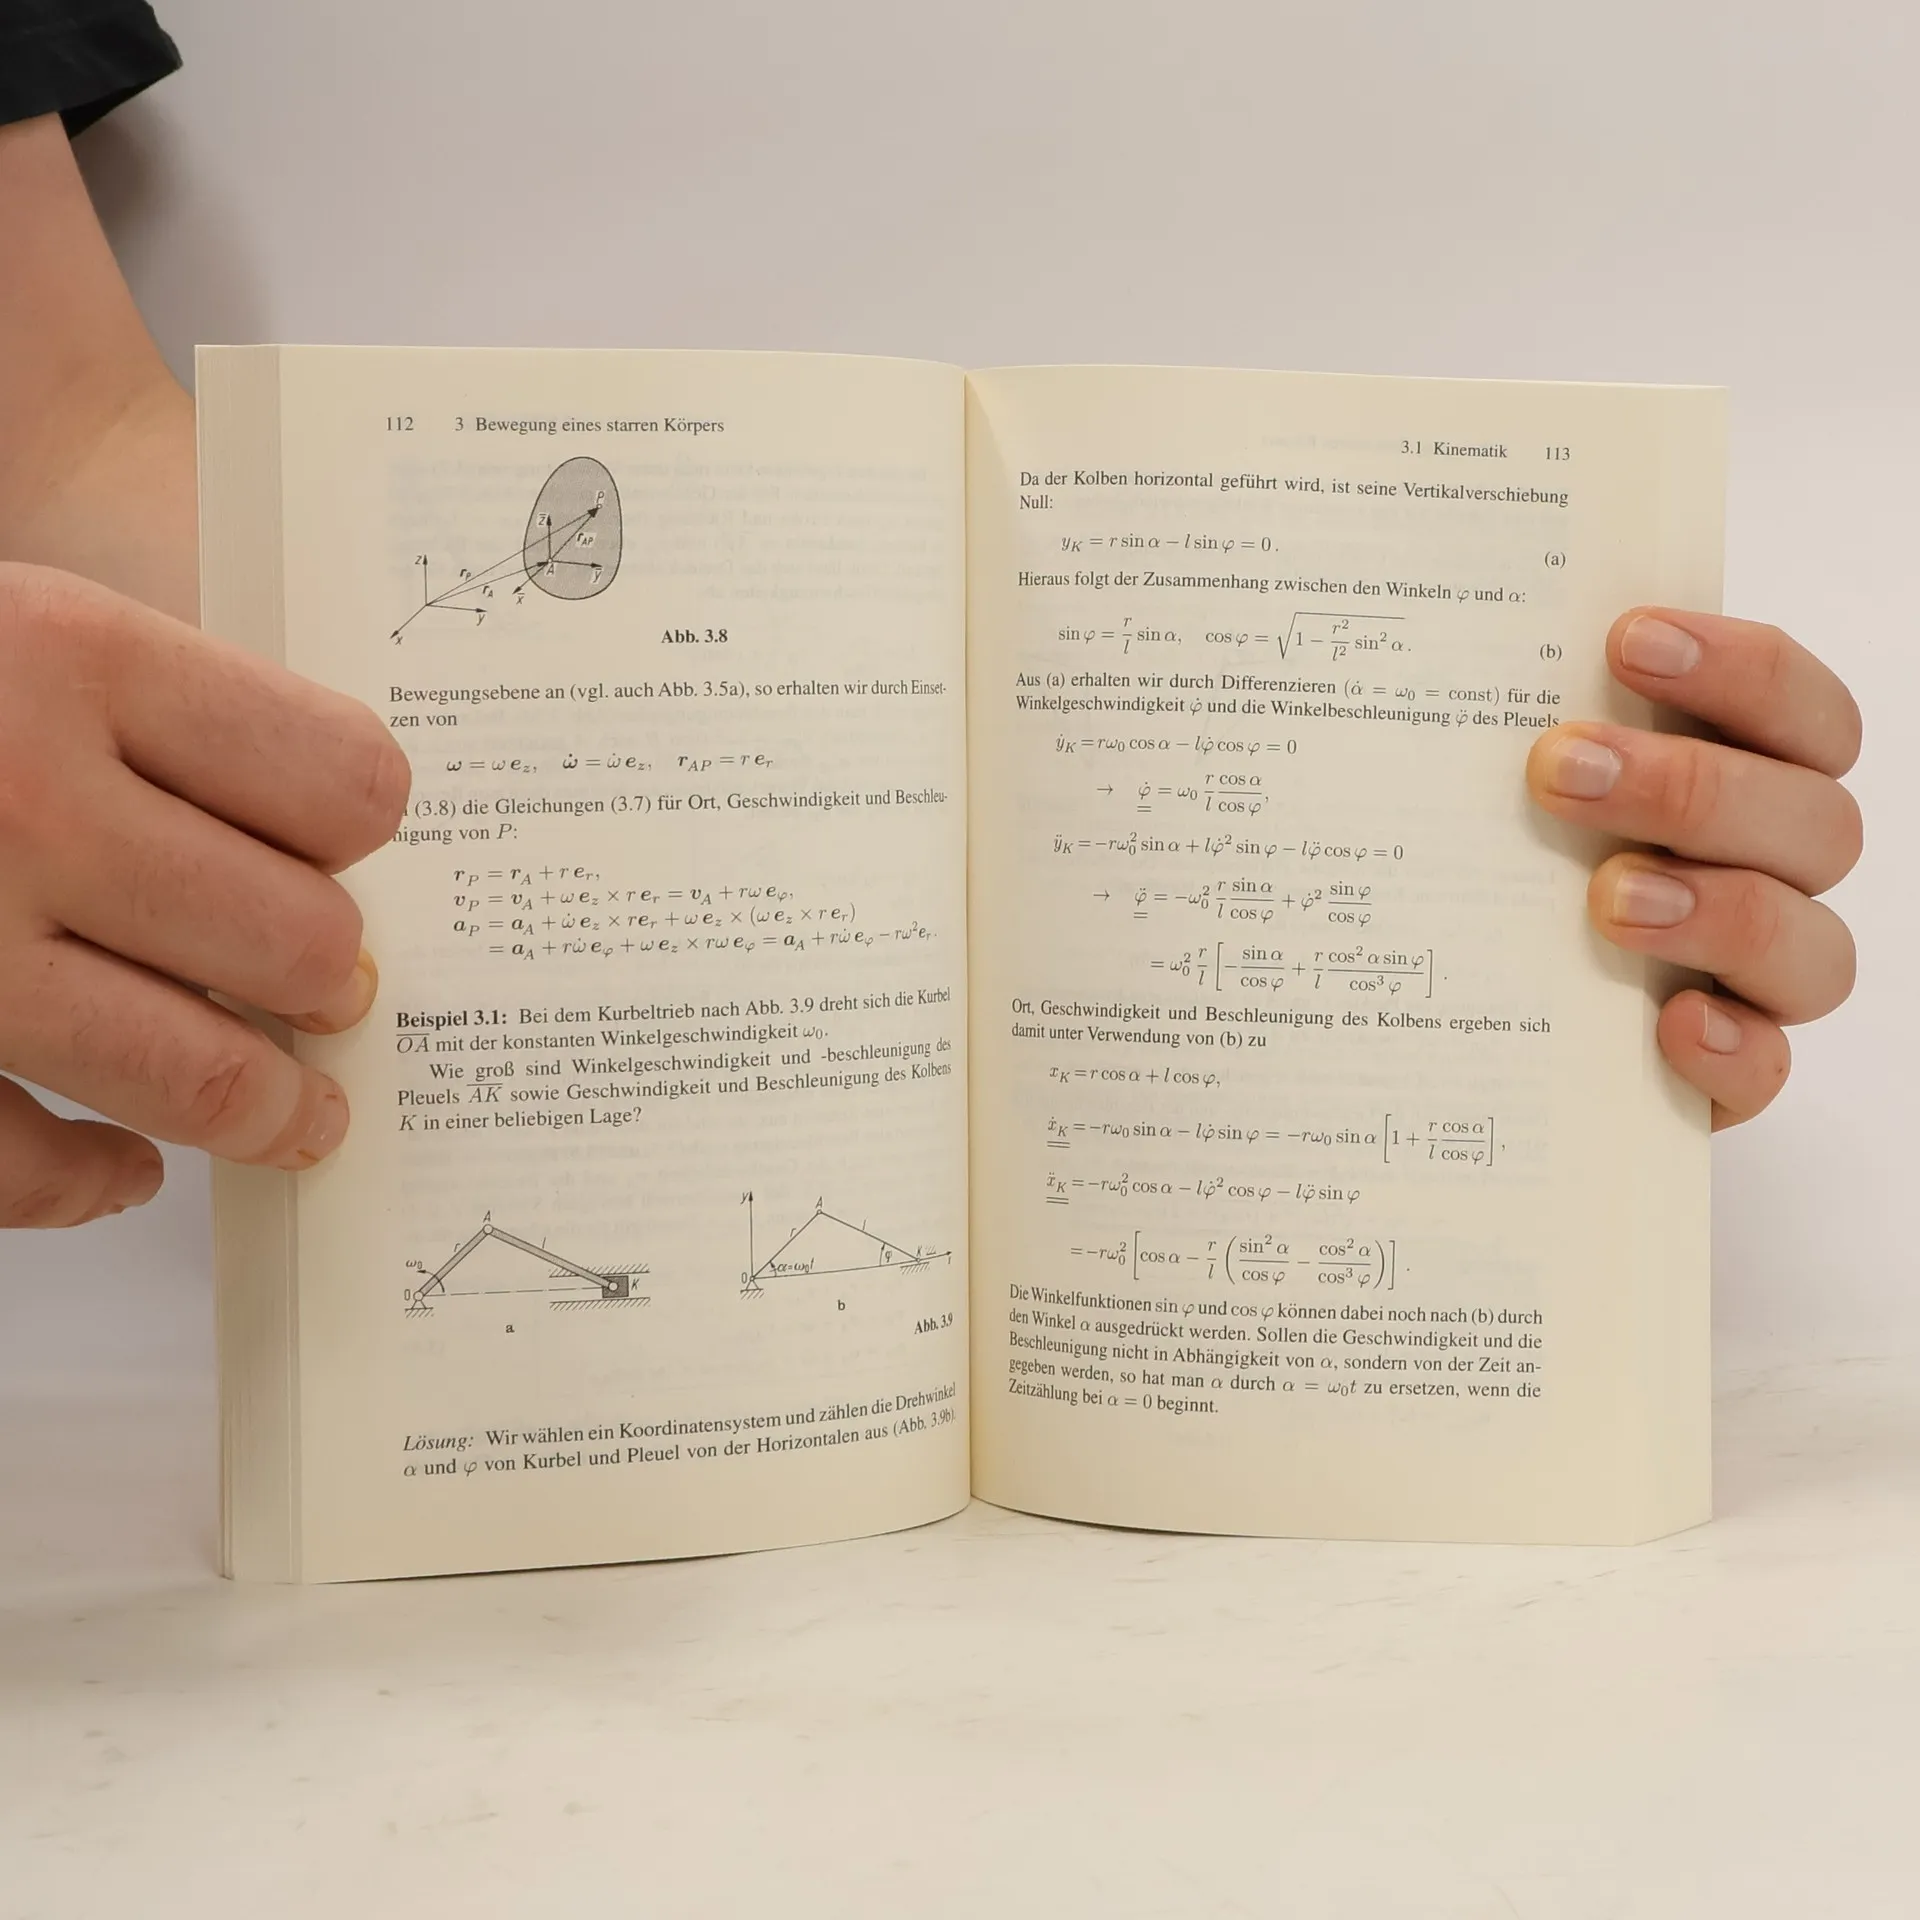 112 3 Bewegung eines starren Körpers
P
z̄
r_AP
z
A
ȳ
r_P
r_A
x̄
y
x
Abb. 3.8
Bewegungsebene an (vgl. auch Abb. 3.5a), so erhalten wir durch Einset-
zen von
ω = ω e_z, ω̇ = ω̇ e_z, r_AP = r e_r
(3.8) die Gleichungen (3.7) für Ort, Geschwindigkeit und Beschleu-
nigung von P:
r_P = r_A + r e_r,
v_P = v_A + ω e_z × r e_r = v_A + rω e_φ,
a_P = a_A + ω̇ e_z × r e_r + ω e_z × (ω e_z × r e_r)
= a_A + rω̇ e_φ + ω e_z × rω e_φ = a_A + rω̇ e_φ − rω² e_r.
Beispiel 3.1: Bei dem Kurbeltrieb nach Abb. 3.9 dreht sich die Kurbel
O̅A̅ mit der konstanten Winkelgeschwindigkeit ω₀.
Wie groß sind Winkelgeschwindigkeit und -beschleunigung des
Pleuels A̅K̅ sowie Geschwindigkeit und Beschleunigung des Kolbens
K in einer beliebigen Lage?
A
r
l
ω₀
0
K
a
y
A
r
l
α=ω₀t
φ
K
0
b
Abb. 3.9
Lösung: Wir wählen ein Koordinatensystem und zählen die Drehwinkel
α und φ von Kurbel und Pleuel von der Horizontalen aus (Abb. 3.9b).
3.1 Kinematik 113
Da der Kolben horizontal geführt wird, ist seine Vertikalverschiebung
Null:
y_K = r sin α − l sin φ = 0. (a)
Hieraus folgt der Zusammenhang zwischen den Winkeln φ und α:
sin φ = r/l sin α, cos φ = √(1 − r²/l² sin² α). (b)
Aus (a) erhalten wir durch Differenzieren (α̇ = ω₀ = const) für die
Winkelgeschwindigkeit φ̇ und die Winkelbeschleunigung φ̈ des Pleuels
ẏ_K = rω₀ cos α − lφ̇ cos φ = 0
→ φ̇ = ω₀ r/l cos α/cos φ,
ÿ_K = −rω₀² sin α + lφ̇² sin φ − lφ̈ cos φ = 0
→ φ̈ = −ω₀² r/l sin α/cos φ + φ̇² sin φ/cos φ
= ω₀² r/l [− sin α/cos φ + r/l cos² α sin φ/cos³ φ].
Ort, Geschwindigkeit und Beschleunigung des Kolbens ergeben sich
damit unter Verwendung von (b) zu
x_K = r cos α + l cos φ,
ẋ_K = −rω₀ sin α − lφ̇ sin φ = −rω₀ sin α [1 + r/l cos α/cos φ],
ẍ_K = −rω₀² cos α − lφ̇² cos φ − lφ̈ sin φ
= −rω₀² [cos α − r/l (sin² α/cos φ − cos² α/cos³ φ)].
Die Winkelfunktionen sin φ und cos φ können dabei noch nach (b) durch
den Winkel α ausgedrückt werden. Sollen die Geschwindigkeit und die
Beschleunigung nicht in Abhängigkeit von α, sondern von der Zeit an-
gegeben werden, so hat man α durch α = ω₀t zu ersetzen, wenn die
Zeitzählung bei α = 0 beginnt.